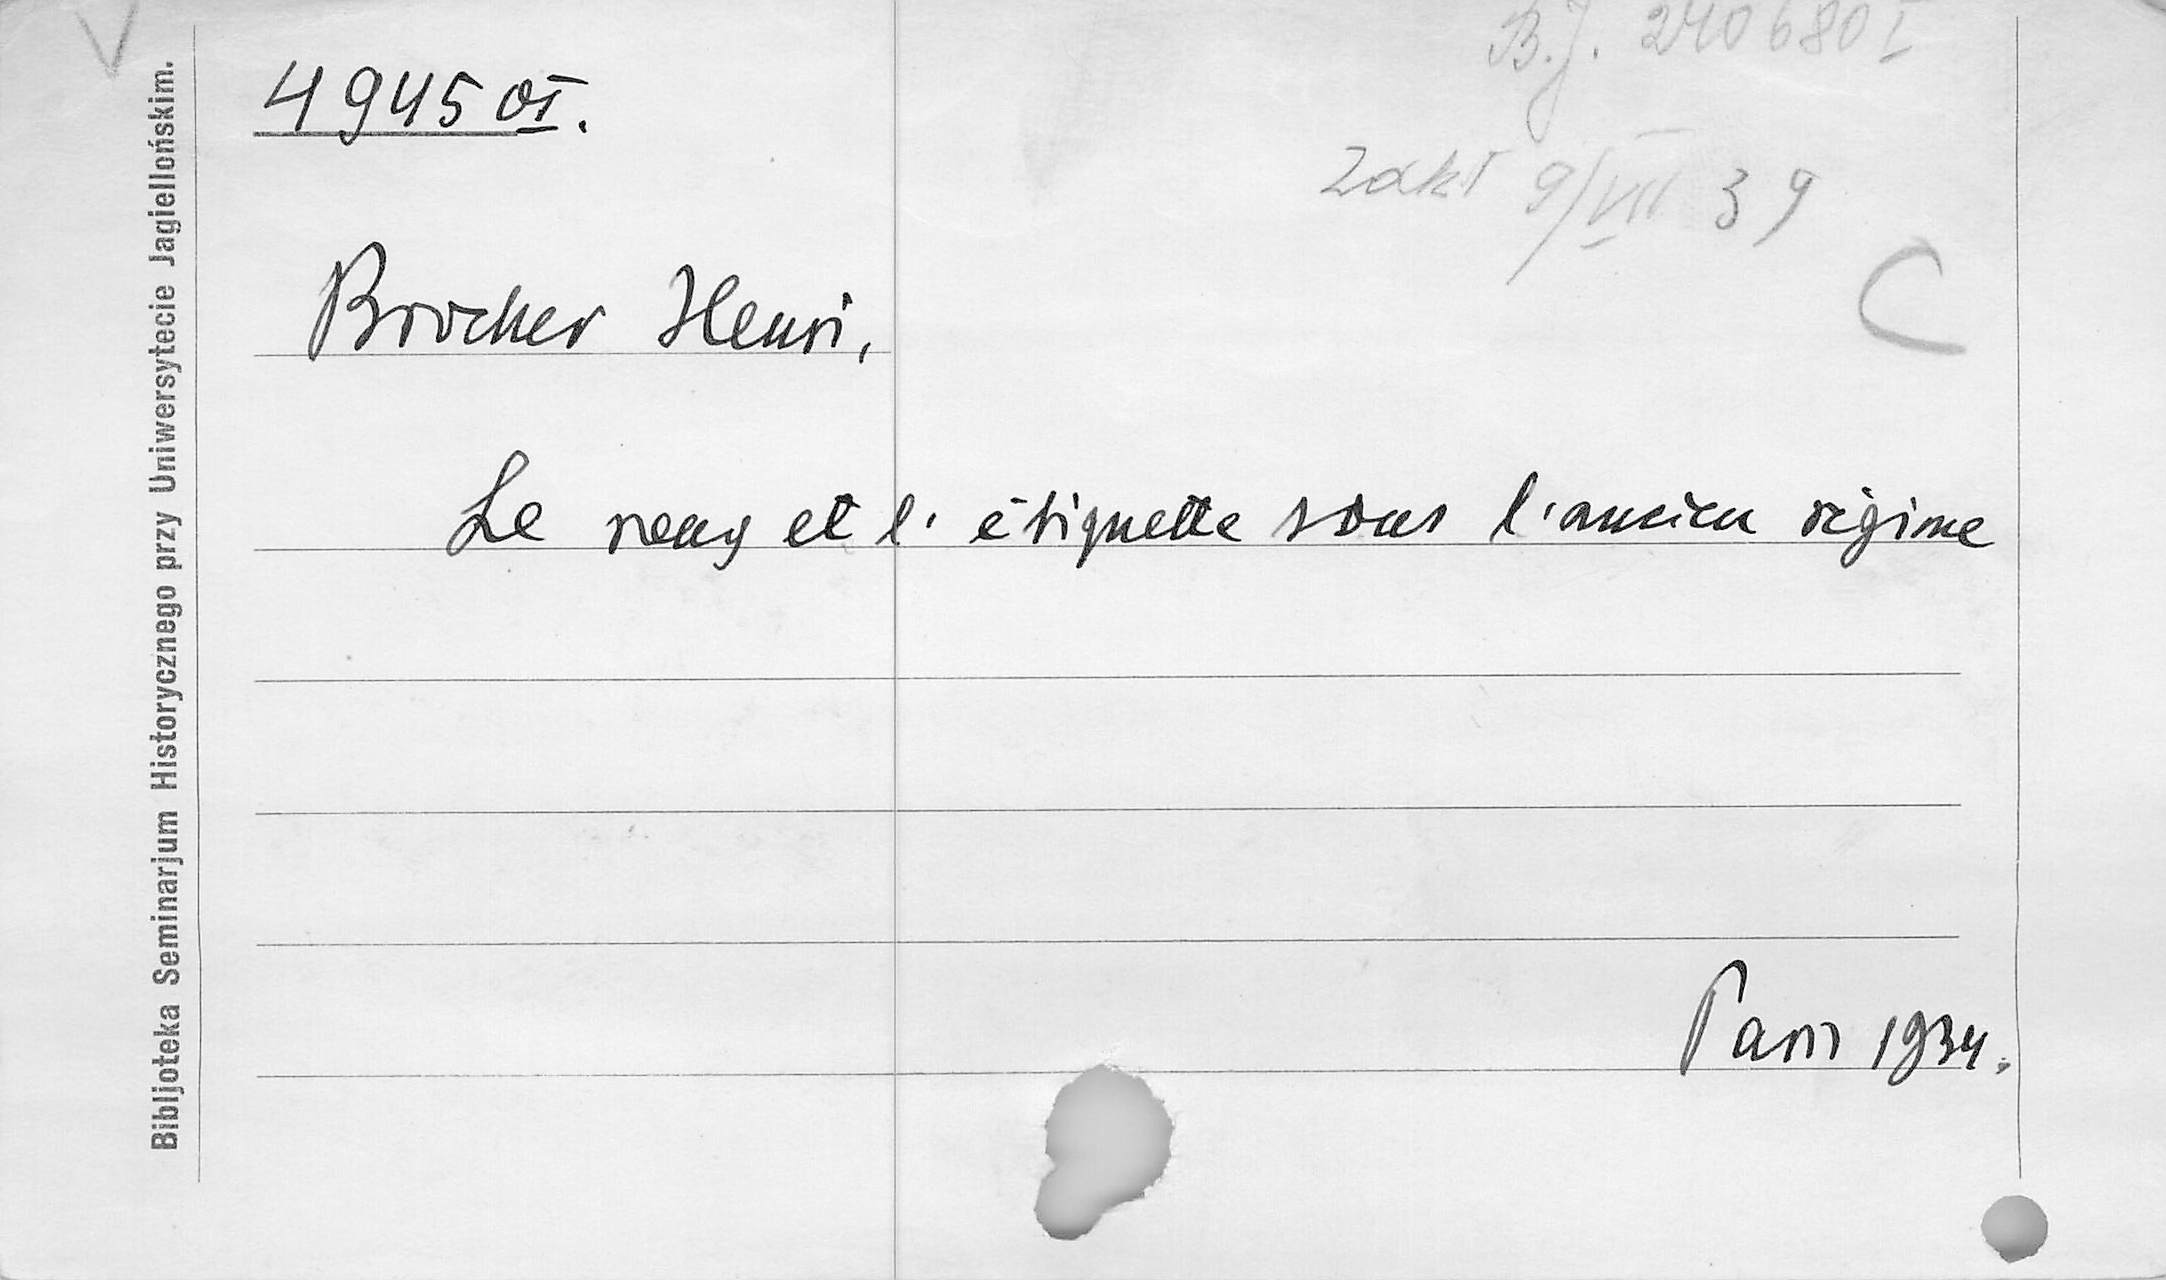 V
B.J. 240680 I
4945 OI.
zakł 9/VII 39
C
Brocher Henri,
Le rang et l'étiquette sous l'ancien régime
Paris 1934.
Bibljoteka Seminarjum Historycznego przy Uniwersytecie Jagiellońskim.